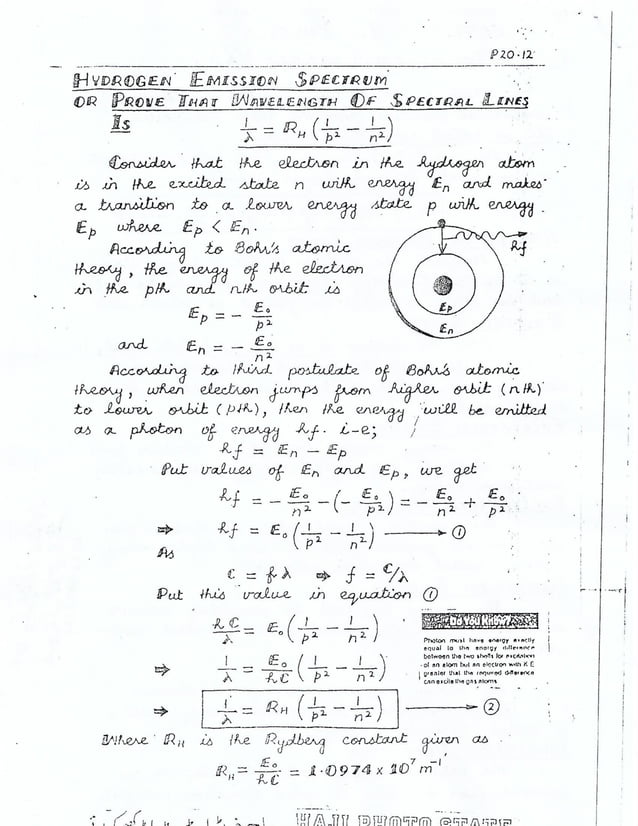 P20-12
HYDROGEN EMISSION SPECTRUM
OR PROVE THAT WAVELENGTH OF SPECTRAL LINES
IS 1/λ = R_H (1/p² − 1/n²)
Consider that the electron in the hydrogen atom
is in the excited state n with energy En and makes
a transition to a lower energy state p with energy
Ep where Ep < En.
hf
Ep
En
According to Bohr's atomic
theory, the energy of the electron
in the pth and nth orbit is
Ep = − E₀/p²
and En = − E₀/n²
According to third postulate of Bohr's atomic
theory, when electron jumps from higher orbit (nth)
to lower orbit (pth), then the energy will be emitted
as a photon of energy hf. i-e;
hf = En − Ep
Put values of En and Ep, we get
hf = − E₀/n² − (− E₀/p²) = − E₀/n² + E₀/p²
⇒ hf = E₀ (1/p² − 1/n²) ⟶ ①
As
C = fλ ⇒ f = C/λ
Put this value in equation ①
hC/λ = E₀ (1/p² − 1/n²)
⇒ 1/λ = E₀/hC (1/p² − 1/n²)
⇒ 1/λ = R_H (1/p² − 1/n²) ⟶ ②
Do You Know?
Photon must have energy exactly
equal to the energy difference
between the two shells for excitation
of an atom but an electron with K.E
greater that the required difference
can excite the gas atoms
Where R_H is the Rydberg constant given as
R_H = E₀/hC = 1.0974 x 10⁷ m⁻¹
HAJI PHOTO STATE